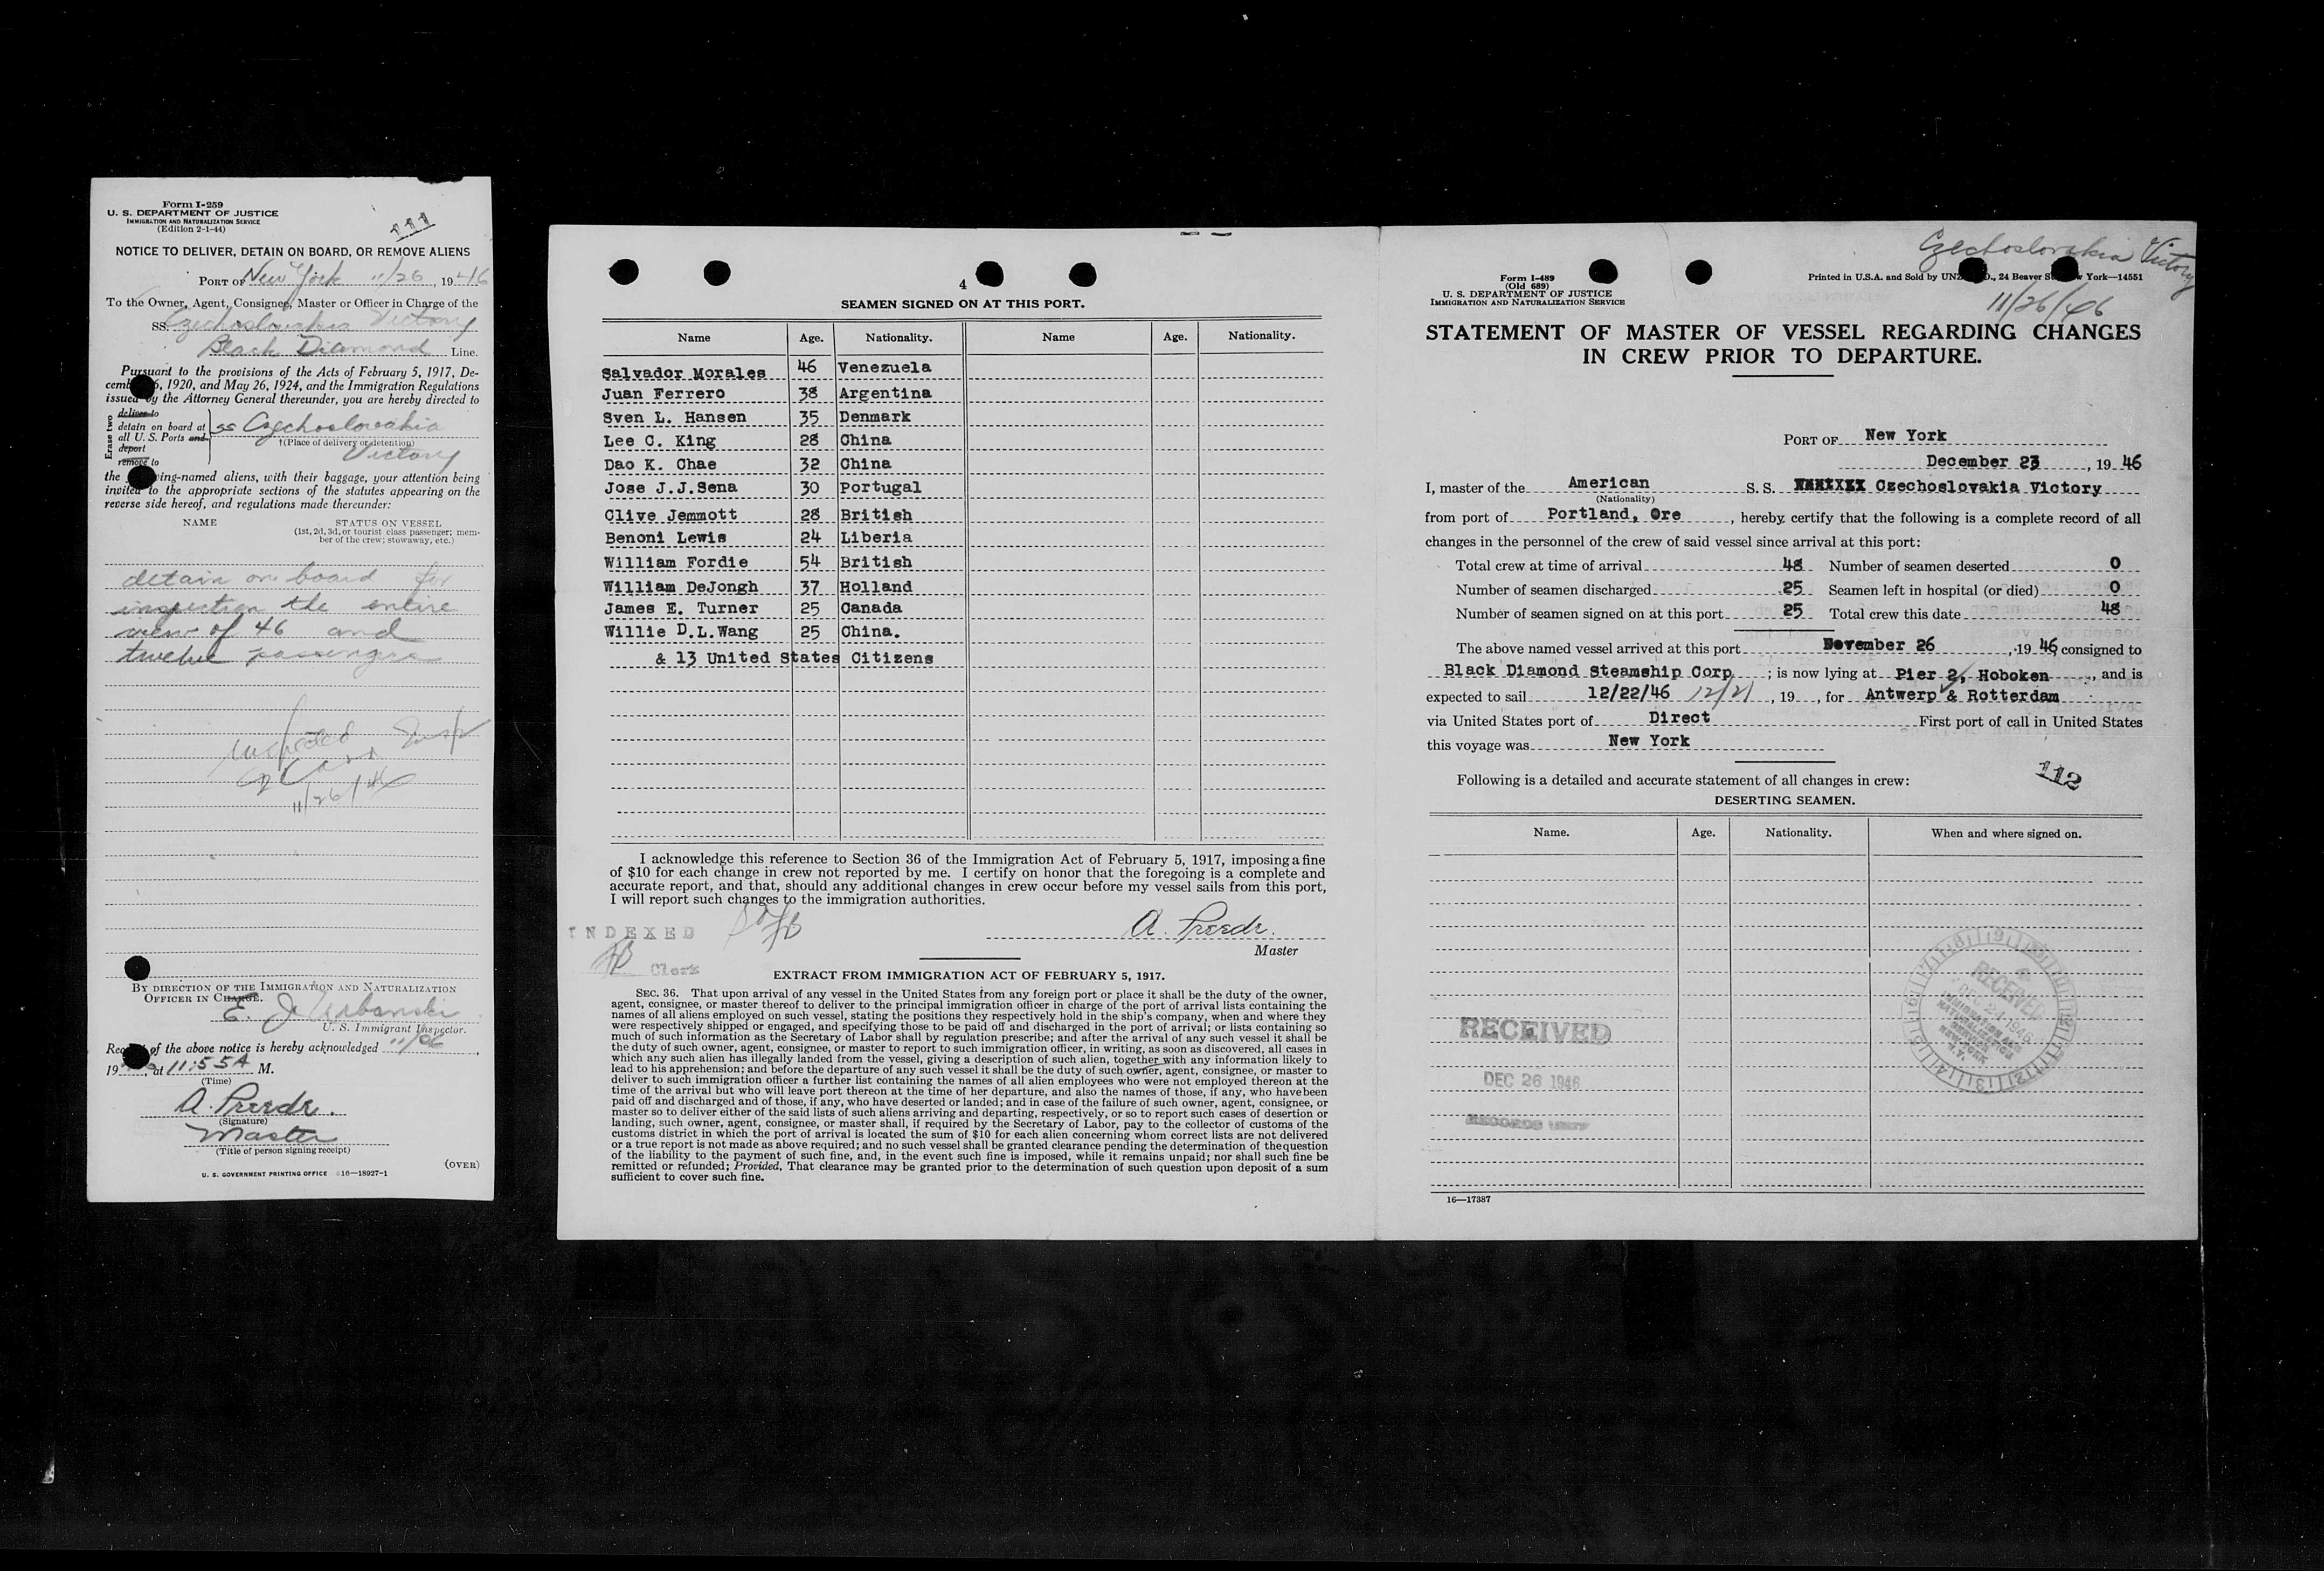 Form I-259
U. S. DEPARTMENT OF JUSTICE
IMMIGRATION AND NATURALIZATION SERVICE
(Edition 2-1-44)
111
NOTICE TO DELIVER, DETAIN ON BOARD, OR REMOVE ALIENS
PORT OF New York 11/26, 1946
To the Owner, Agent, Consignee, Master or Officer in Charge of the
SS. Czechoslovakia Victory
Black Diamond Line.
Pursuant to the provisions of the Acts of February 5, 1917, De-
cember 26, 1920, and May 26, 1924, and the Immigration Regulations
issued by the Attorney General thereunder, you are hereby directed to
Erase two
deliver to
detain on board at
all U. S. Ports and
deport
remove to
ss Czechoslovakia
†(Place of delivery or detention)
Victory
the ing-named aliens, with their baggage, your attention being
invited to the appropriate sections of the statutes appearing on the
reverse side hereof, and regulations made thereunder:
NAME STATUS ON VESSEL
(1st, 2d, 3d, or tourist class passenger; mem-
ber of the crew; stowaway, etc.)
detain on board for
inspection the entire
crew of 46 and
twelve passengers
inspected
11/26/46
BY DIRECTION OF THE IMMIGRATION AND NATURALIZATION
OFFICER IN CHARGE.
E. J. Urbanski
U. S. Immigrant Inspector.
Receipt of the above notice is hereby acknowledged 11/26,
19 , at 11:55 A M.
(Time)
A. Preede.
(Signature)
Master
(Title of person signing receipt)
U. S. GOVERNMENT PRINTING OFFICE 16—18927-1
(OVER)
4
SEAMEN SIGNED ON AT THIS PORT.
Name Age. Nationality. Name Age. Nationality.
Salvador Morales 46 Venezuela
Juan Ferrero 38 Argentina
Sven L. Hansen 35 Denmark
Lee C. King 28 China
Dao K. Chae 32 China
Jose J.J.Sena 30 Portugal
Clive Jemmott 28 British
Benoni Lewis 24 Liberia
William Fordie 54 British
William DeJongh 37 Holland
James E. Turner 25 Canada
Willie D.L.Wang 25 China.
& 13 United States Citizens
I acknowledge this reference to Section 36 of the Immigration Act of February 5, 1917, imposing a fine
of $10 for each change in crew not reported by me. I certify on honor that the foregoing is a complete and
accurate report, and that, should any additional changes in crew occur before my vessel sails from this port,
I will report such changes to the immigration authorities.
INDEXED
Clerk
A. Preede.
Master
EXTRACT FROM IMMIGRATION ACT OF FEBRUARY 5, 1917.
SEC. 36. That upon arrival of any vessel in the United States from any foreign port or place it shall be the duty of the owner,
agent, consignee, or master thereof to deliver to the principal immigration officer in charge of the port of arrival lists containing the
names of all aliens employed on such vessel, stating the positions they respectively hold in the ship's company, when and where they
were respectively shipped or engaged, and specifying those to be paid off and discharged in the port of arrival; or lists containing so
much of such information as the Secretary of Labor shall by regulation prescribe; and after the arrival of any such vessel it shall be
the duty of such owner, agent, consignee, or master to report to such immigration officer, in writing, as soon as discovered, all cases in
which any such alien has illegally landed from the vessel, giving a description of such alien, together with any information likely to
lead to his apprehension; and before the departure of any such vessel it shall be the duty of such owner, agent, consignee, or master to
deliver to such immigration officer a further list containing the names of all alien employees who were not employed thereon at the
time of the arrival but who will leave port thereon at the time of her departure, and also the names of those, if any, who have been
paid off and discharged and of those, if any, who have deserted or landed; and in case of the failure of such owner, agent, consignee, or
master so to deliver either of the said lists of such aliens arriving and departing, respectively, or so to report such cases of desertion or
landing, such owner, agent, consignee, or master shall, if required by the Secretary of Labor, pay to the collector of customs of the
customs district in which the port of arrival is located the sum of $10 for each alien concerning whom correct lists are not delivered
or a true report is not made as above required; and no such vessel shall be granted clearance pending the determination of the question
of the liability to the payment of such fine, and, in the event such fine is imposed, while it remains unpaid; nor shall such fine be
remitted or refunded; Provided, That clearance may be granted prior to the determination of such question upon deposit of a sum
sufficient to cover such fine.
Czechoslovakia Victory
11/26/46
Form I-489
(Old 689)
U. S. DEPARTMENT OF JUSTICE
IMMIGRATION AND NATURALIZATION SERVICE
Printed in U.S.A. and Sold by UNZ & CO., 24 Beaver St., New York—14551
STATEMENT OF MASTER OF VESSEL REGARDING CHANGES
IN CREW PRIOR TO DEPARTURE.
PORT OF New York
December 23, 1946
I, master of the American S. S. Czechoslovakia Victory
(Nationality)
from port of Portland, Ore, hereby certify that the following is a complete record of all
changes in the personnel of the crew of said vessel since arrival at this port:
Total crew at time of arrival 48 Number of seamen deserted 0
Number of seamen discharged 25 Seamen left in hospital (or died) 0
Number of seamen signed on at this port 25 Total crew this date 48
The above named vessel arrived at this port November 26, 1946, consigned to
Black Diamond Steamship Corp.; is now lying at Pier 2, Hoboken, and is
expected to sail 12/22/46 12/21, 19 , for Antwerp & Rotterdam
via United States port of Direct First port of call in United States
this voyage was New York
Following is a detailed and accurate statement of all changes in crew:
112
DESERTING SEAMEN.
Name. Age. Nationality. When and where signed on.
RECEIVED
DEC 24 1946
IMMIGRATION AND
NATURALIZATION
SERVICE
NEW YORK
N.Y.
RECEIVED
DEC 26 1946
RECORDS UNIT
16—17387